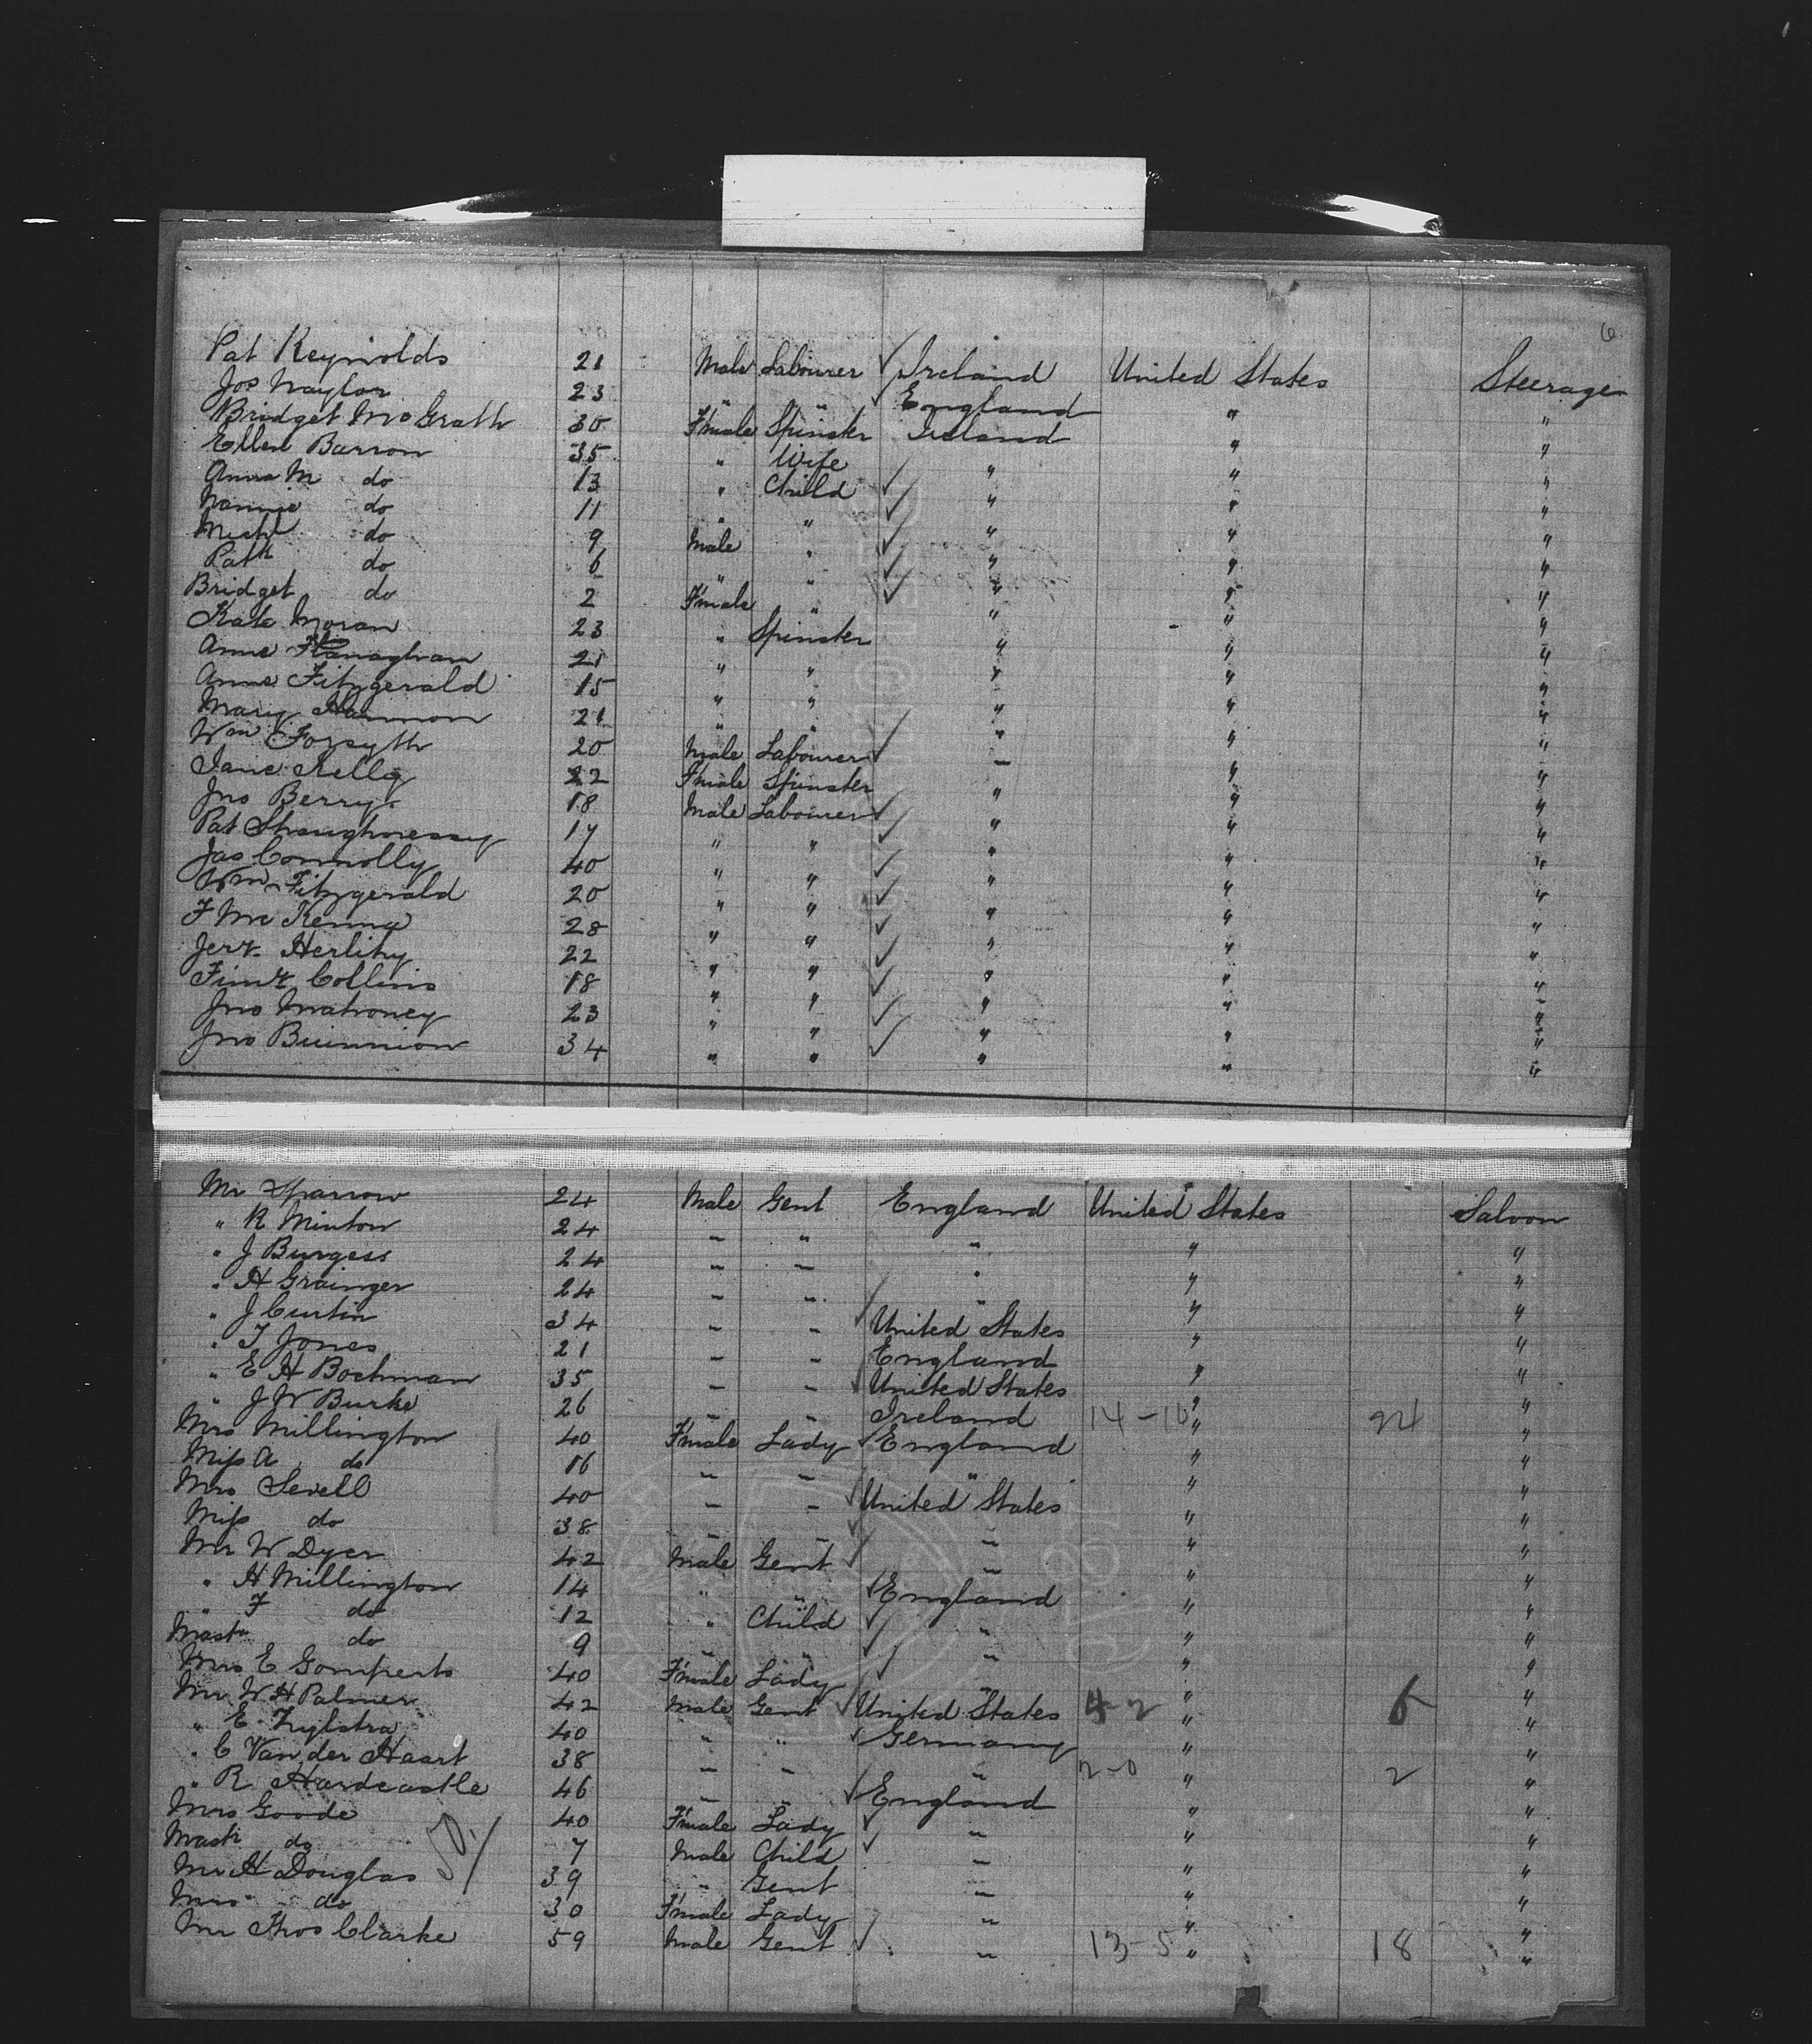 6
Pat Reynolds 21 Male Labourer ✓ Ireland United States Steerage
Jos Naylor 23 " " ✓ England " "
Bridget McGrath 30 F'male Spinster Ireland " "
Ellen Barron 35 " Wife " " "
Anna M do 13 " Child ✓ " " "
Nannie do 11 " " ✓ " " "
Michl do 9 Male " ✓ " " "
Patk do 6 " " ✓ " " "
Bridget do 2 F'male " ✓ " " "
Kate Moran 23 " Spinster " " "
Anne Flanaghan 21 " " " " "
Anne Fitzgerald 15 " " " " "
Mary Hannon 21 " " " " "
Wm Forsyth 20 Male Labourer ✓ " " "
Jane Kelly 22 F'male Spinster " " "
Jno Berry 18 Male Labourer ✓ " " "
Pat Shaughnessy 17 " " ✓ " " "
Jas Connolly 40 " " ✓ " " "
Wm Fitzgerald 20 " " ✓ " " "
F McKenna 28 " " ✓ " " "
Jery Herlihy 22 " " ✓ " " "
Timy Collins 18 " " ✓ " " "
Jno Mahoney 23 " " ✓ " " "
Jno 34 " " ✓ " " "
Mr Sparrow 24 Male Gent England United States Saloon
" R Minton 24 " " " " "
" J Burgess 24 " " " " "
" H Grainger 24 " " " " "
" J Curtin 34 " " ✓ United States " "
" T Jones 21 " " England " "
" E H Bochman 35 " " ✓ United States " "
" J W Burke 26 " " Ireland " "
Mrs Millington 40 F'male Lady ✓ England 14-10 " 94 "
Miss A do 16 " " " " "
Mrs Sevell 40 " " ✓ United States " "
Miss do 38 " " ✓ " " "
Mr W Dyer 42 Male Gent ✓ " " "
" H Millington 14 " " ✓ England " "
" F do 12 " Child ✓ " " "
Mastr do 9 " " ✓ " " "
Mrs E Gomperts 40 F'male Lady ✓ " " "
Mr W H Palmer 42 Male Gent ✓ United States 4-2 " 6 "
" E Zylstra 40 " " ✓ Germany " "
" C Van der Haart 38 " " " 2-0 " 2 "
" R Hardcastle 46 " " ✓ England " "
Mrs Goode 40 F'male Lady ✓ " " "
Mastr do 7 Male Child ✓ " " "
Mr H Douglas 39 " Gent " " "
Mrs do 30 F'male Lady " " "
Mr Thos Clarke 59 Male Gent ✓ " 13-5 " 18 "